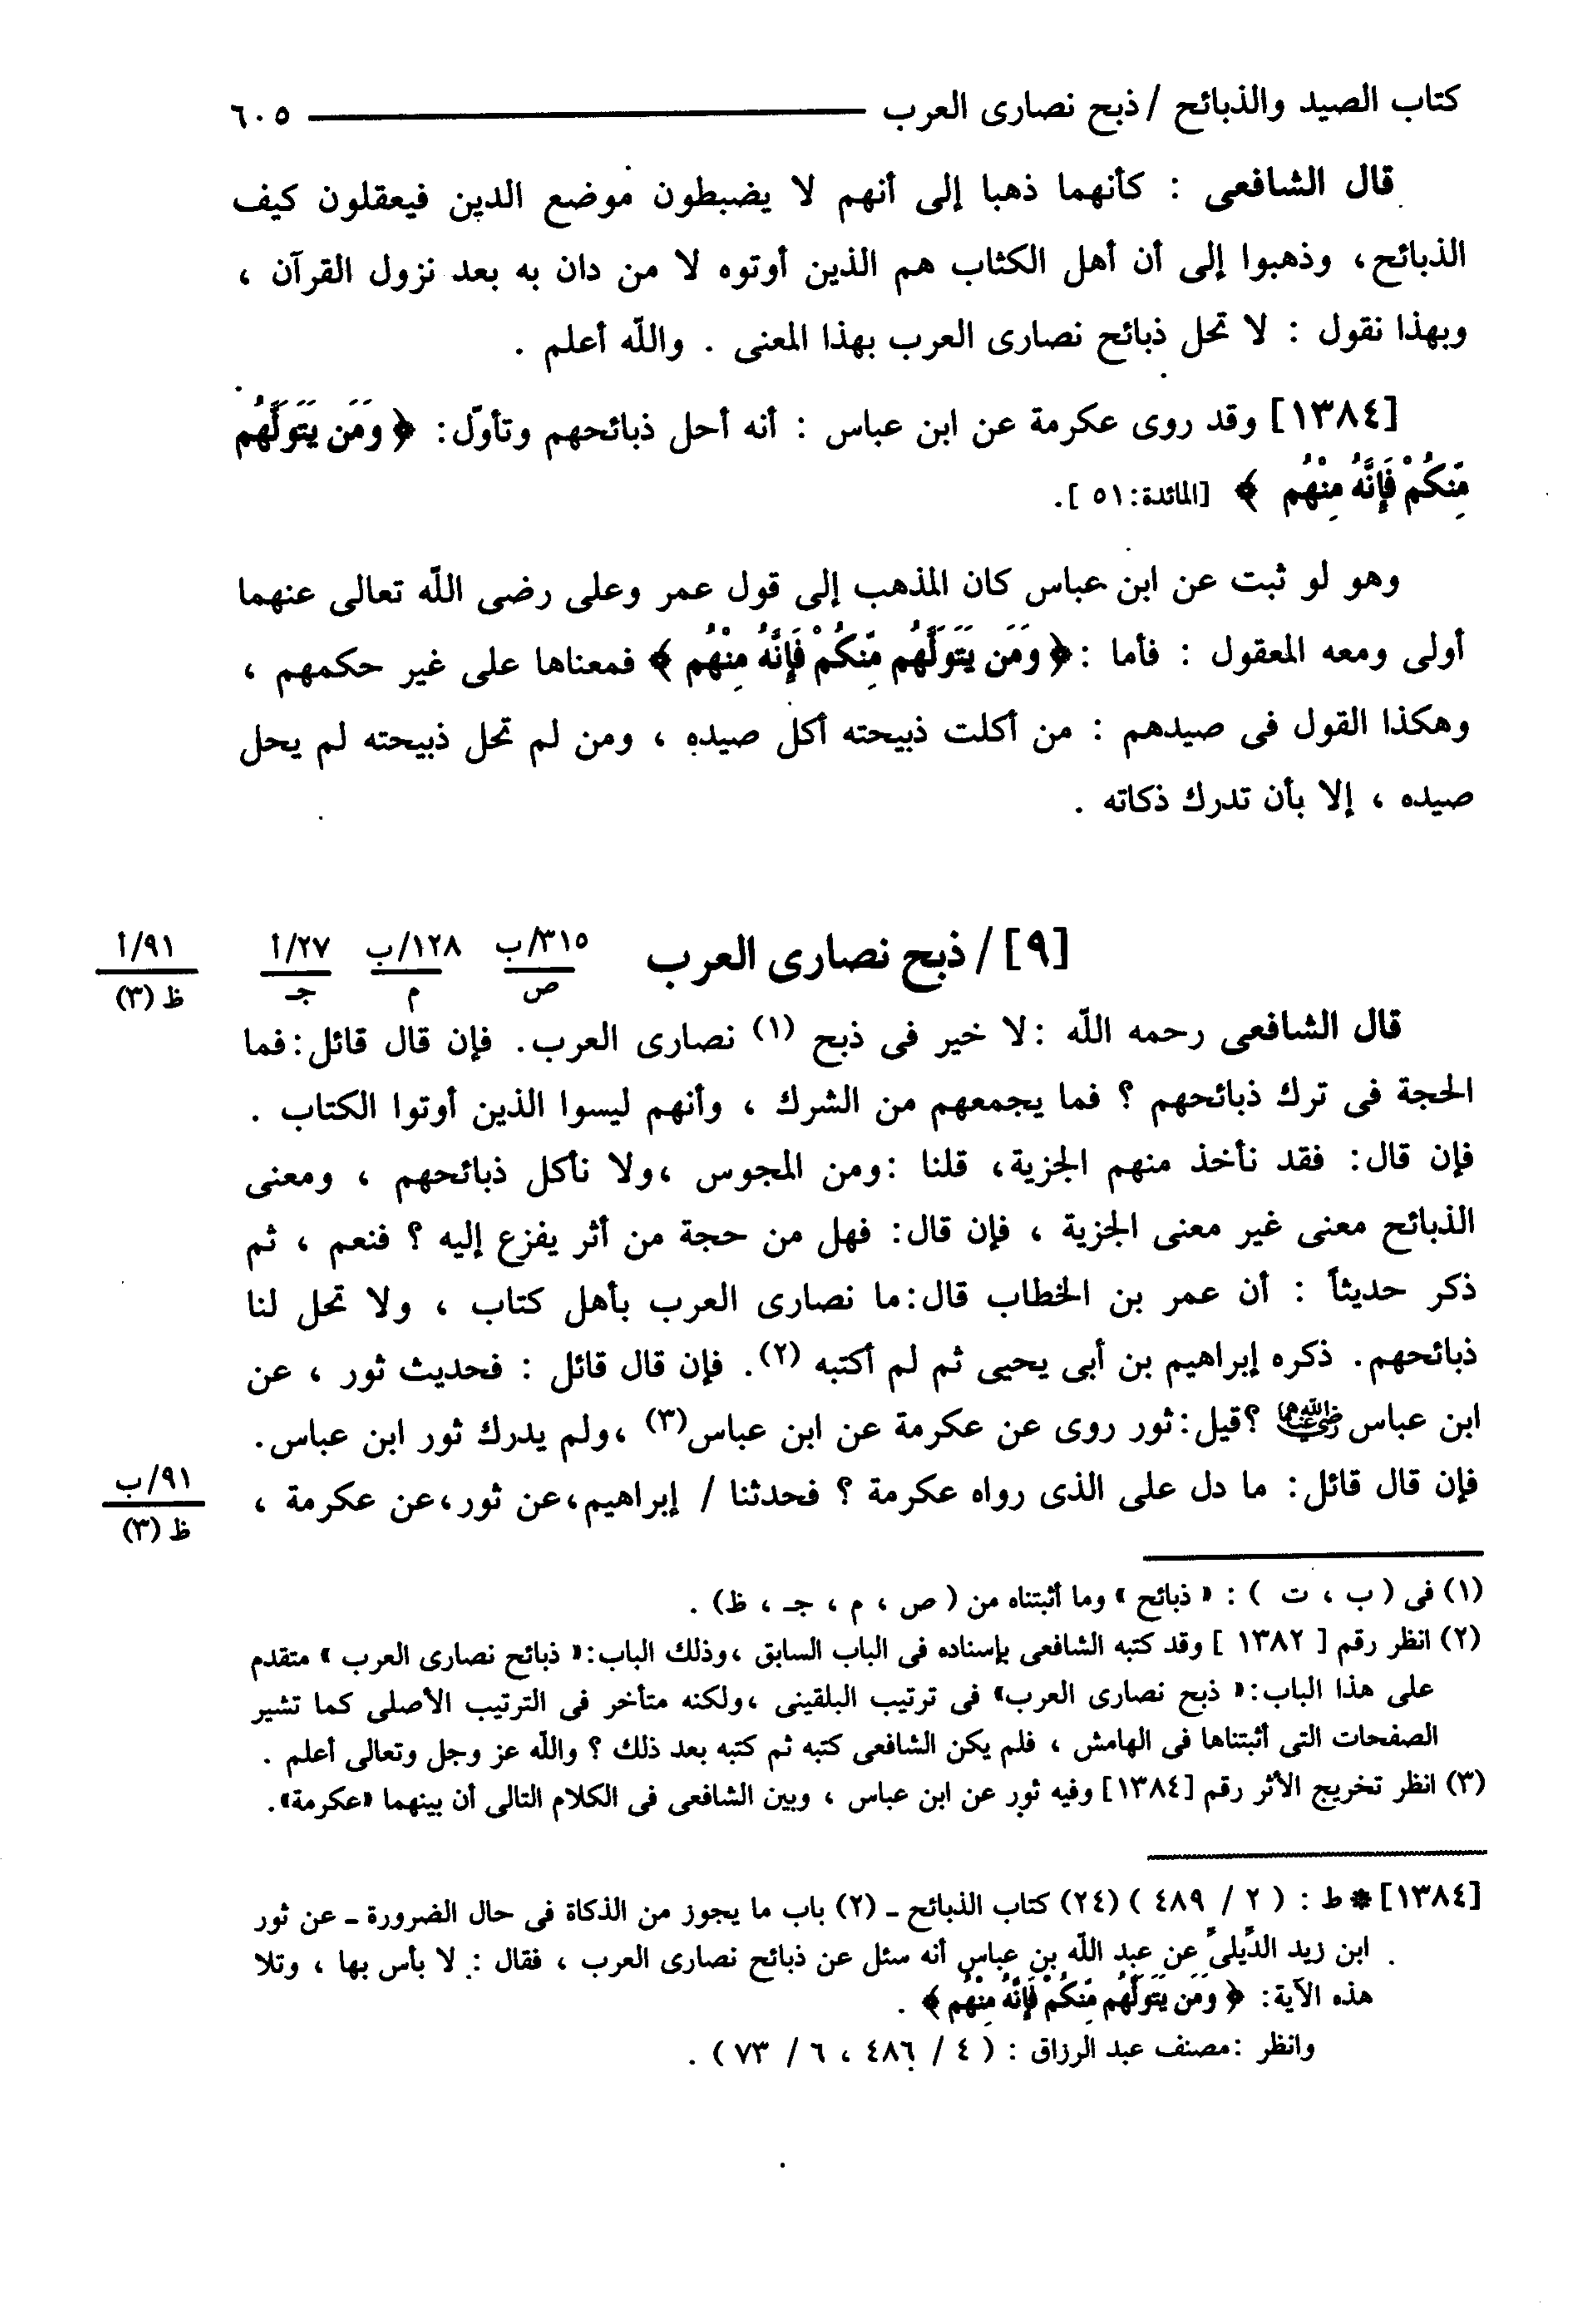 كتاب الصيد والذبائح / ذبح نصارى العرب ٦٠٥
قال الشافعى : كأنهما ذهبا إلى أنهم لا يضبطون موضع الدين فيعقلون كيف
الذبائح، وذهبوا إلى أن أهل الكتاب هم الذين أوتوه لا من دان به بعد نزول القرآن ،
وبهذا نقول : لا تحل ذبائح نصارى العرب بهذا المعنى . والله أعلم .
[١٣٨٤] وقد روى عكرمة عن ابن عباس : أنه أحل ذبائحهم وتأوّل: ﴿ وَمَن يَتَوَلَّهُم
مِّنكُمْ فَإِنَّهُ مِنْهُمْ ﴾ [المائدة: ٥١ ].
وهو لو ثبت عن ابن عباس كان المذهب إلى قول عمر وعلى رضى الله تعالى عنهما
أولى ومعه المعقول : فأما :﴿ وَمَن يَتَوَلَّهُم مِّنكُمْ فَإِنَّهُ مِنْهُمْ ﴾ فمعناها على غير حكمهم ،
وهكذا القول فى صيدهم : من أكلت ذبيحته أكل صيده ، ومن لم تحل ذبيحته لم يحل
صيده ، إلا بأن تدرك ذكاته .
[٩] / ذبح نصارى العرب ٣١٥/ب ص ١٢٨/ب م ٢٧/أ جـ ٩١/أ ظ (٣)
قال الشافعى رحمه الله : لا خير فى ذبح (١) نصارى العرب. فإن قال قائل: فما
الحجة فى ترك ذبائحهم ؟ فما يجمعهم من الشرك ، وأنهم ليسوا الذين أوتوا الكتاب .
فإن قال: فقد نأخذ منهم الجزية، قلنا :ومن المجوس ،ولا نأكل ذبائحهم ، ومعنى
الذبائح معنى غير معنى الجزية ، فإن قال: فهل من حجة من أثر يفزع إليه ؟ فنعم ، ثم
ذكر حديثاً : أن عمر بن الخطاب قال:ما نصارى العرب بأهل كتاب ، ولا تحل لنا
ذبائحهم. ذكره إبراهيم بن أبى يحيى ثم لم أكتبه (٢). فإن قال قائل : فحديث ثور ، عن
ابن عباس رضي الله عنهما ؟قيل: ثور روى عن عكرمة عن ابن عباس(٣) ،ولم يدرك ثور ابن عباس.
فإن قال قائل: ما دل على الذى رواه عكرمة ؟ فحدثنا / إبراهيم،عن ثور،عن عكرمة ، ٩١/ب ظ (٣)
(١) فى ( ب ، ت ) : « ذبائح » وما أثبتناه من ( ص ، م ، جـ ، ظ) .
(٢) انظر رقم [ ١٣٨٢ ] وقد كتبه الشافعى بإسناده فى الباب السابق ،وذلك الباب:« ذبائح نصارى العرب » متقدم
على هذا الباب:« ذبح نصارى العرب» فى ترتيب البلقينى ،ولكنه متأخر فى الترتيب الأصلى كما تشير
الصفحات التى أثبتناها فى الهامش ، فلم يكن الشافعى كتبه ثم كتبه بعد ذلك ؟ والله عز وجل وتعالى أعلم .
(٣) انظر تخريج الأثر رقم [١٣٨٤] وفيه ثور عن ابن عباس ، وبين الشافعى فى الكلام التالى أن بينهما «عكرمة».
[١٣٨٤] * ط : ( ٢ / ٤٨٩ ) (٢٤) كتاب الذبائح ـ (٢) باب ما يجوز من الذكاة فى حال الضرورة ـ عن ثور
ابن زيد الدِّيلىِّ عن عبد الله بن عباس أنه سئل عن ذبائح نصارى العرب ، فقال : لا بأس بها ، وتلا
هذه الآية: ﴿ وَمَن يَتَوَلَّهُم مِّنكُمْ فَإِنَّهُ مِنْهُمْ ﴾ .
وانظر :مصنف عبد الرزاق : ( ٤ / ٤٨٦ ، ٦ / ٧٣ ) .